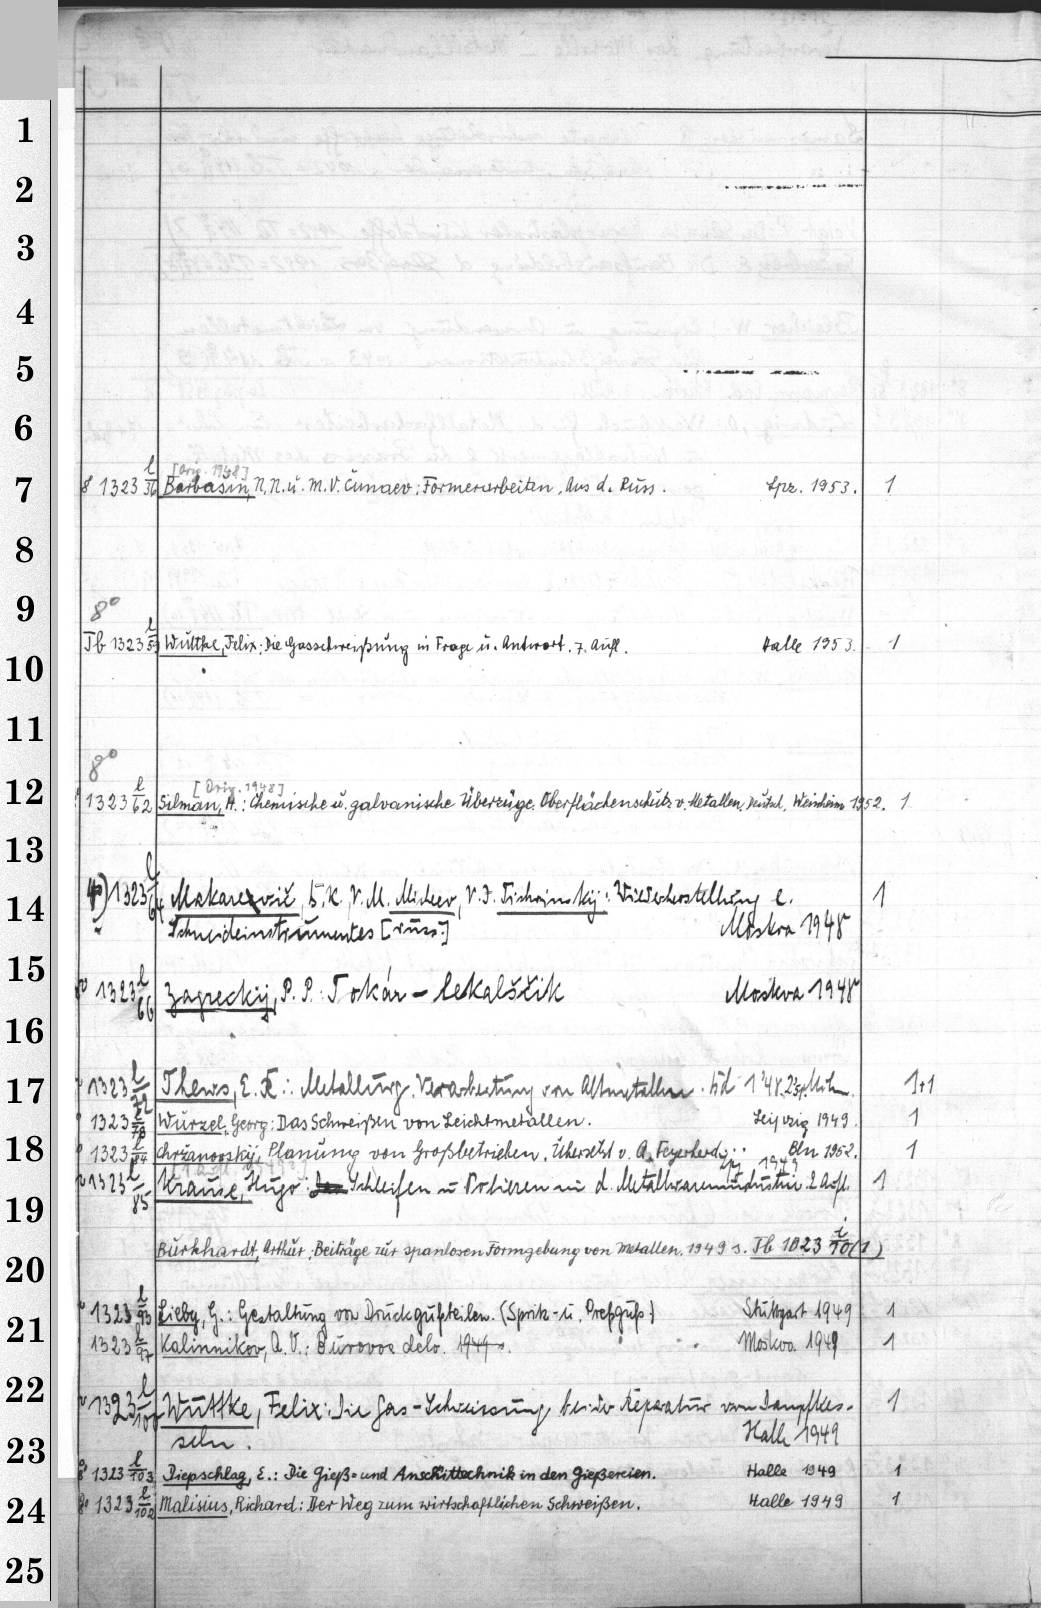 1
2
3
4
5
6
[Orig. 1948]
7 8 1323 l/36 Barbašin, N. N. u. M. V. Čunaev: Formerarbeiten. Aus d. Russ. Lpz. 1953. 1
8
9 8°
Tb 1323 l/53 Wuttke, Felix: Die Gasschweißung in Frage u. Antwort. 7. Aufl. Halle 1953. 1
10
11
8°
[Orig. 1948]
12 1323 l/62 Silman, H.: Chemische u. galvanische Überzüge. Oberflächenschutz v. Metallen. Deutsch. Weinheim 1952. 1
13
14 1323 l/64 V. M. Micheev, V. I. Wiederherstellung e. 1
Schneideinstrumentes [russ.] Moskva 1948
15
1323 l/66 Zagreckij, P. P. Tokár - lekalščik Moskva 1948
16
17 1323 l Thews, E. R.: Metallurg. Verarbeitung von Altmetallen. Bd 1 '48. 1+1
1323 l/78 Wurzel, Georg: Das Schweißen von Leichtmetallen. Leipzig 1949. 1
18 1323 l/84 Chržanovskij, Planung von Großbetrieben. Übersetzt v. A. Feyerherd. Bln 1952. 1
1323 l/85 Krause, Hugo: Schleifen u Polieren in d. Metallwarenindustrie. 2. Aufl. 1
19
Burkhardt, Arthur: Beiträge zur spanlosen Formgebung von Metallen. 1949 s. Tb 1023 i/10(1)
20
1323 l/93 Lieby, G.: Gestaltung von Druckgußteilen. (Spritz- u. Preßguß) Stuttgart 1949 1
21 1323 l/97 Kalinnikov, A. V.: Burovoe delo. 1949. Moskva 1949 1
22 1323 l/100 Wuttke, Felix: Die Gas-Schweissung bei der Reparatur von Dampfkes- 1
seln. Halle 1949
23 8° 1323 l/103 Diepschlag, E.: Die Gieß- und Anschnittechnik in den Gießereien. Halle 1949 1
24 8° 1323 l/102 Malisius, Richard: Der Weg zum wirtschaftlichen Schweißen. Halle 1949 1
25